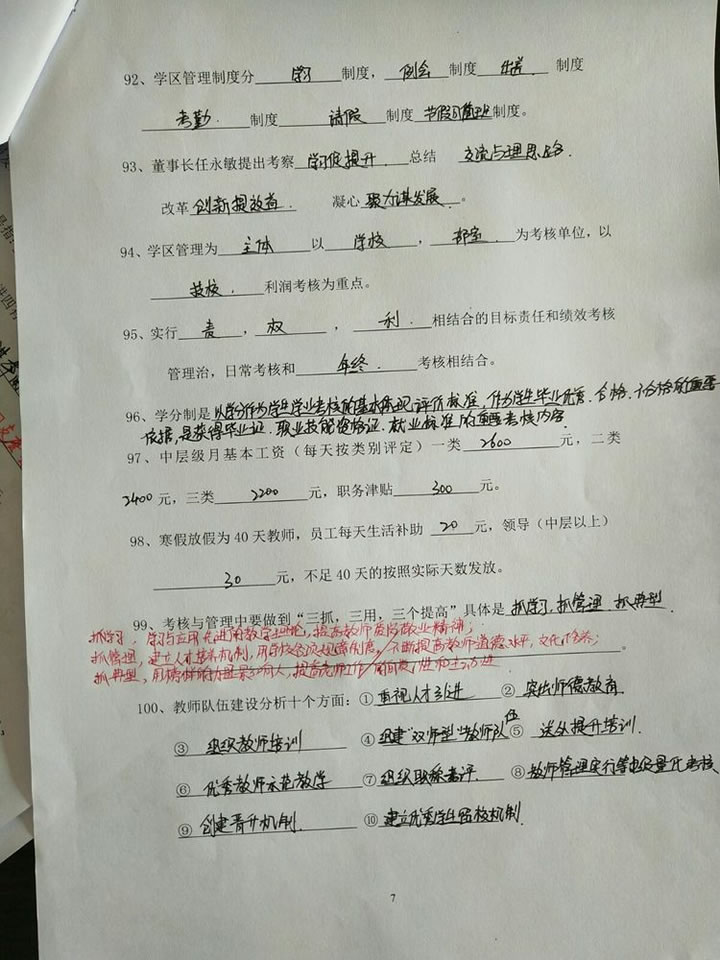 92、学区管理制度分 学习 制度， 例会 制度 制度
考勤 制度 请假 制度 节假日值班制度。
93、董事长任永敏提出考察 学习促提升 总结 交流与理思路
改革 创新提效益 凝心 聚力谋发展 。
94、学区管理为 主体 以 学校 ， 部室 为考核单位，以
技校 利润考核为重点。
95、实行 责 ， 权 ， 利 相结合的目标责任和绩效考核
管理治，日常考核和 年终 考核相结合。
96、学分制是 以学分作为学生学业考核的基本 评价标准 作为学生毕业优秀、合格、不合格的重要
依据，是获得毕业证、职业技能资格证、就业标准的重要考核内容
97、中层级月基本工资（每天按类别评定）一类 2600 元，二类
2400 元，三类 2200 元，职务津贴 300 元。
98、寒假放假为 40 天教师，员工每天生活补助 20 元，领导（中层以上）
30 元，不足 40 天的按照实际天数发放。
99、考核与管理中要做到“三抓，三用，三个提高”具体是 抓学习 抓管理 抓典型
抓学习，学习与应用先进的教学理论，提高教师 敬业精神；
抓管理，建立人才 机制，用学校各项规章制度，不断提高教师道德水平，文化 ；
抓典型，用榜样的力量 人，提高
100、教师队伍建设分析十个方面：① 重视人才引进 ② 突出师德教育
③ 组织教师培训 ④ 组建“双师型”教师队伍 ⑤ 送外提升培训
⑥ 优秀教师示范教学 ⑦ 组织职称考评 ⑧ 教师管理实行 量化考核
⑨ 创建晋升机制 ⑩ 建立优秀学生留校机制
7